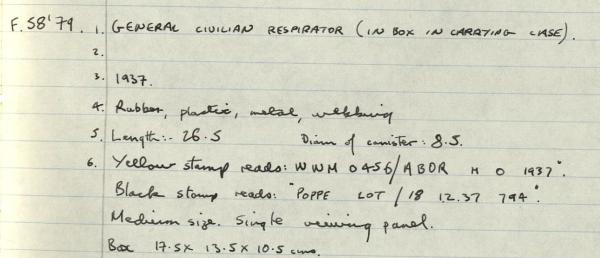 F.58'79. 1. GENERAL CIVILIAN RESPIRATOR (IN BOX IN CARRYING CASE).
2.
3. 1937.
4. Rubber, plastic, metal, webbing
5. Length:- 26.5 Diam of canister: 8.5.
6. Yellow stamp reads: WWM 0456/ABDR M O 1937".
Black stamp reads: "POPPE LOT / 18 12.37 794".
Medium size. Single viewing panel.
Box 17.5 x 13.5 x 10.5 cms.